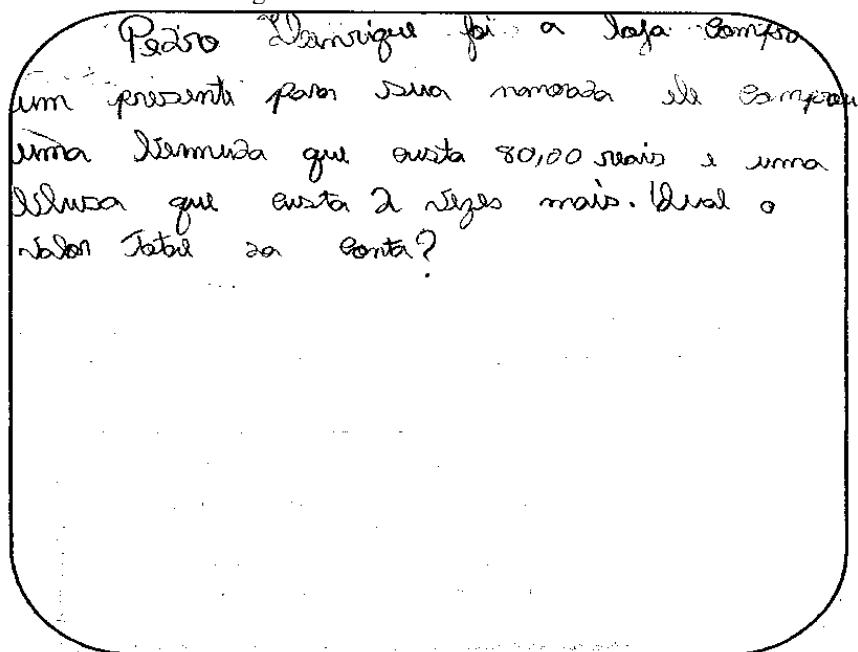 Pedro Henrique foi a loja compra
um presente para sua namorada ele comprou
uma bermuda que custa 80,00 reais e uma
blusa que custa 2 vezes mais. Qual o
valor Total da conta?